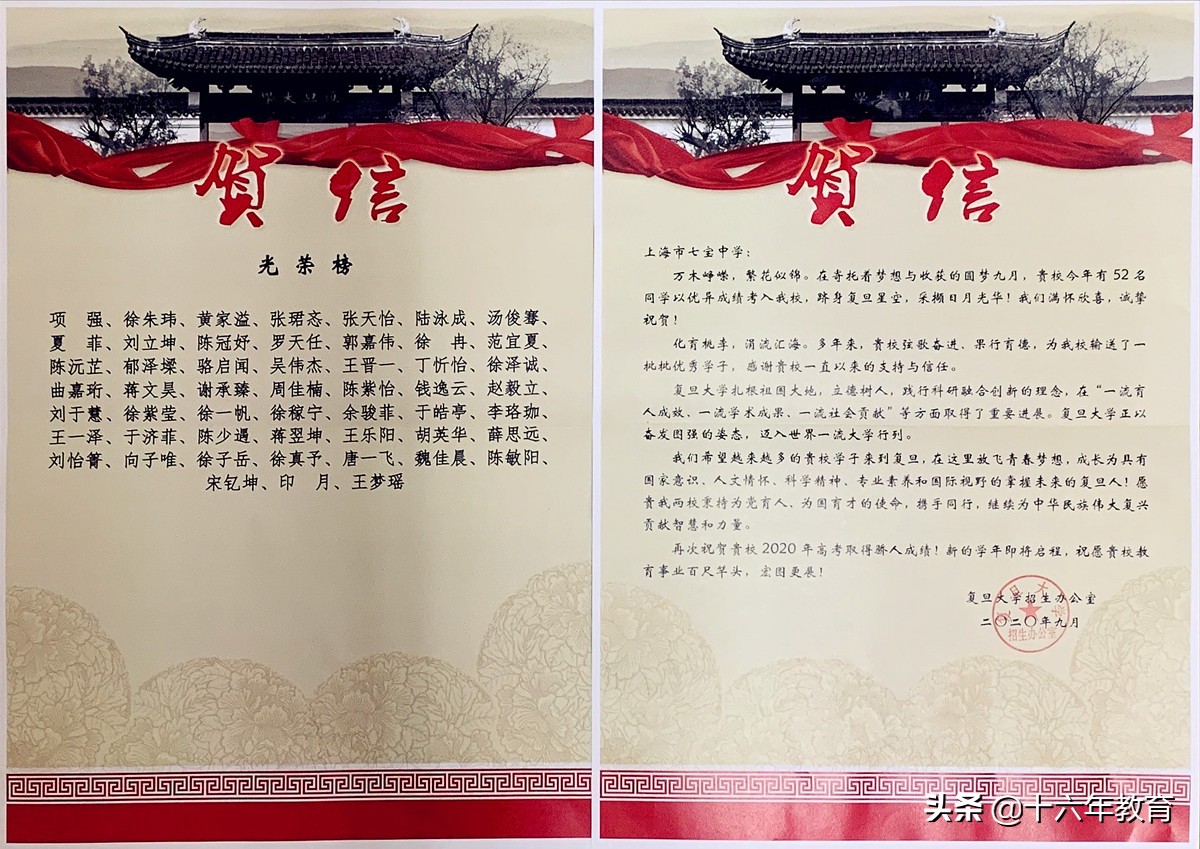 贺信
光荣榜
项 强、徐朱玮、黄家溢、张珺忞、张天怡、陆泳成、汤俊骞、
夏 菲、刘立坤、陈冠妤、罗天任、郭嘉伟、徐 冉、范宜夏、
陈沅芷、郁泽墚、骆启闻、吴伟杰、王晋一、丁忻怡、徐泽诚、
曲嘉珩、蒋文昊、谢承臻、周佳楠、陈紫怡、钱逸云、赵毅立、
刘于慧、徐紫莹、徐一帆、徐稼宁、余骏菲、于皓亭、李珞珈、
王一泽、于济菲、陈少遇、蒋翌坤、王乐阳、胡英华、薛思远、
刘怡箐、向子唯、徐子岳、徐真予、唐一飞、魏佳晨、陈敏阳、
宋钇坤、印 月、王梦瑶
贺信
上海市七宝中学：
万木峥嵘，繁花似锦。在寄托着梦想与收获的圆梦九月，贵校今年有 52 名
同学以优异成绩考入我校，跻身复旦星空，采撷日月光华！我们满怀欣喜，诚挚
祝贺！
化育桃李，涓流汇海。多年来，贵校弦歌奋进、果行育德，为我校输送了一
批批优秀学子，感谢贵校一直以来的支持与信任。
复旦大学扎根祖国大地，立德树人，践行科研融合创新的理念，在“一流育
人成效、一流学术成果、一流社会贡献”等方面取得了重要进展。复旦大学正以
奋发图强的姿态，迈入世界一流大学行列。
我们希望越来越多的贵校学子来到复旦，在这里放飞青春梦想，成长为具有
国家意识、人文情怀、科学精神、专业素养和国际视野的掌握未来的复旦人！愿
贵我两校秉持为党育人、为国育才的使命，携手同行，继续为中华民族伟大复兴
贡献智慧和力量。
再次祝贺贵校 2020 年高考取得骄人成绩！新的学年即将启程，祝愿贵校教
育事业百尺竿头，宏图更展！
复旦大学招生办公室
二〇二〇年九月
复旦大学
招生办公室
头条 @十六年教育